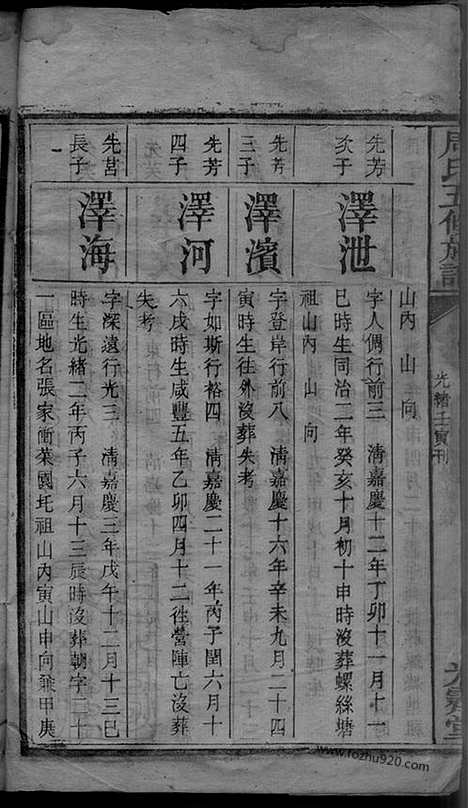 周氏五修族譜
光緒壬寅刊
山內 山 向
先芳
次子
澤泄
字人倜行前三 清嘉慶十二年丁卯十一月十一
巳時生同治二年癸亥十月初十申時沒葬螺絲塘
祖山內 山 向
先芳
三子
澤濱
字登岸行前八 清嘉慶十六年辛未九月二十四
寅時生往外沒葬失考
先芳
四子
澤河
字如斯行裕四 清嘉慶二十一年丙子閏六月十
六戌時生咸豐五年乙卯四月十二往營陣亡沒葬
失考
先莒
長子
澤海
字深遠行光三 清嘉慶三年戊午十二月十三巳
時生光緒二年丙子六月十三辰時沒葬朝字二十
一區地名張家衝菜園圫祖山內寅山申向兼甲庚
www.fozhu920.com